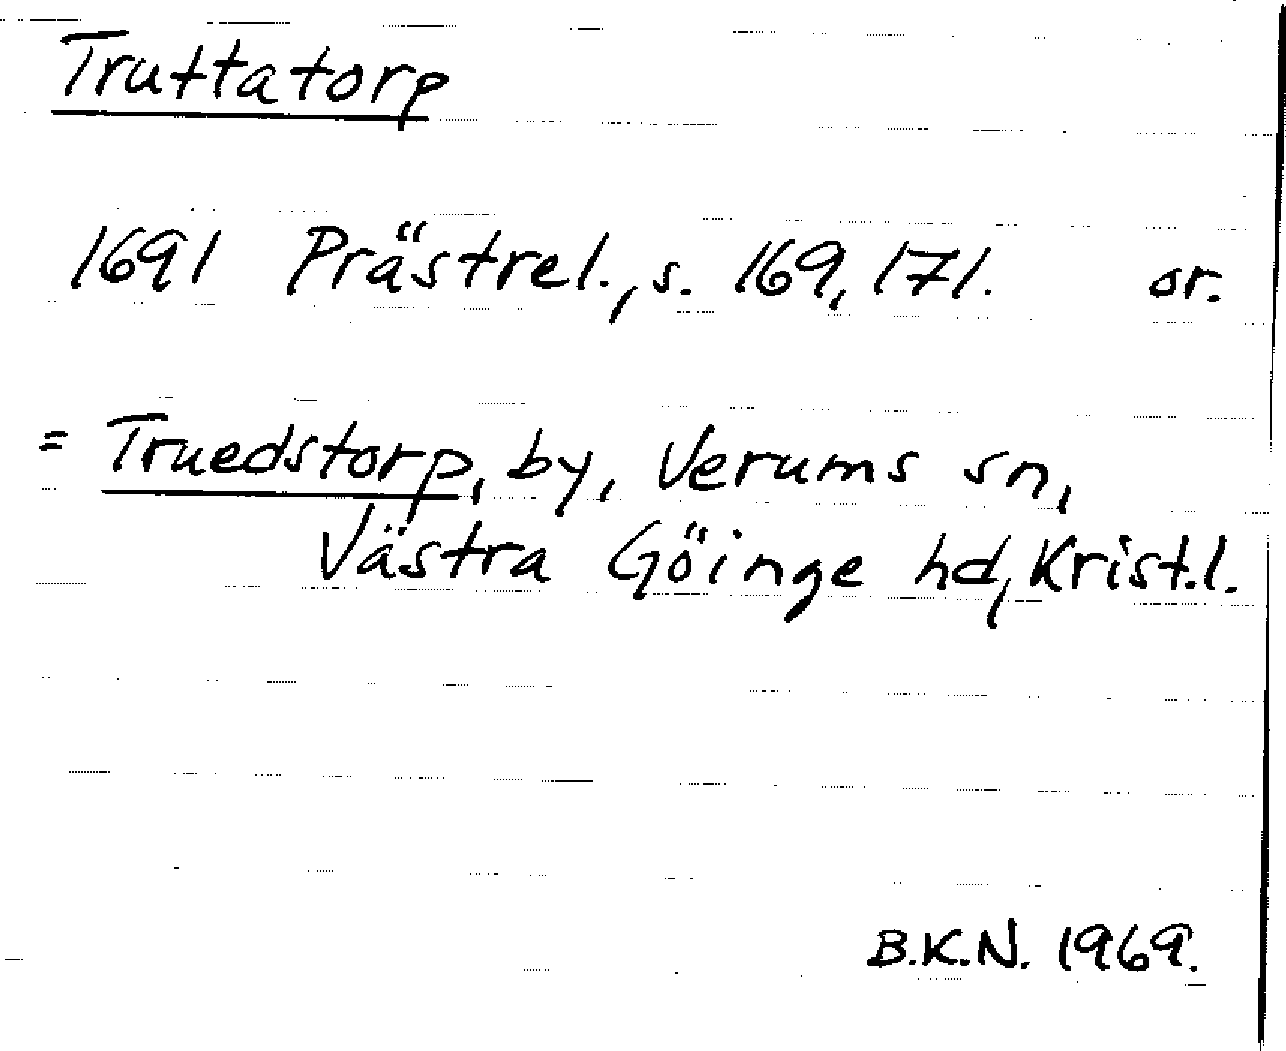 Truttatorp
1691 Prästrel., s. 169, 171. or.
= Truedstorp, by, Verums sn,
Västra Göinge hd, Krist.l.
B.K.N. 1969.